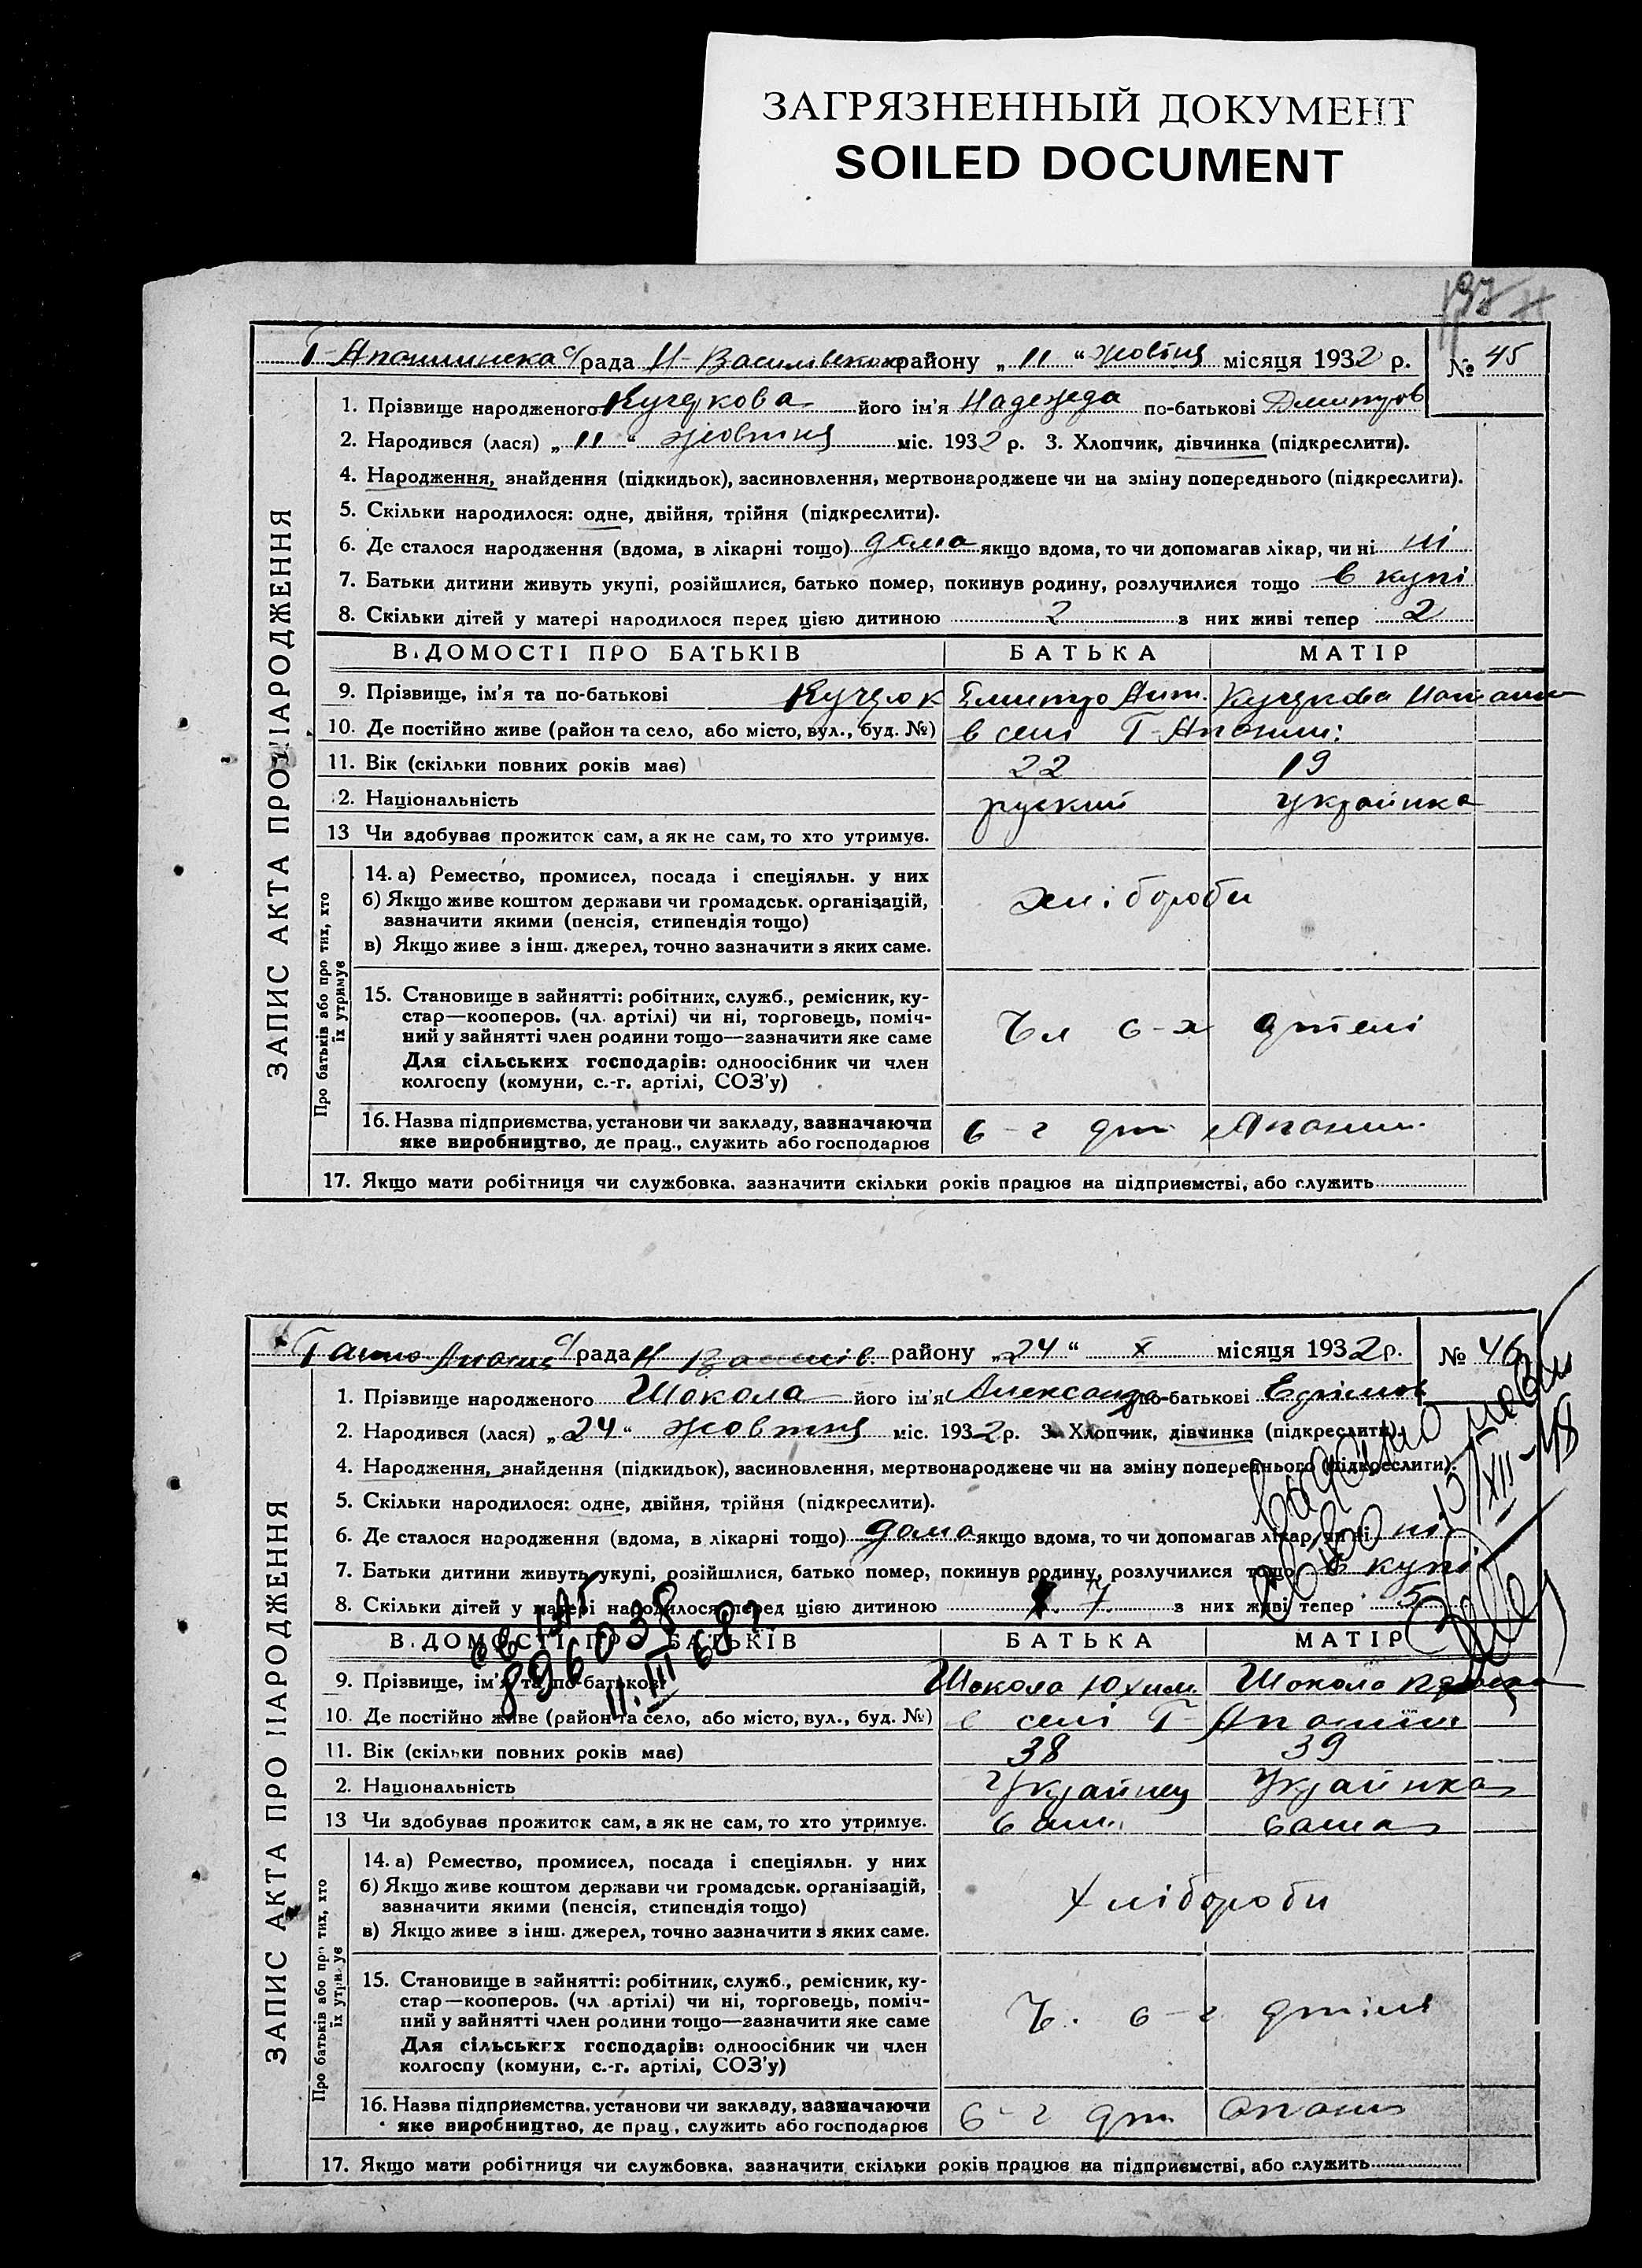 ЗАГРЯЗНЕННЫЙ ДОКУМЕНТ
SOILED DOCUMENT
ЗАПИС АКТА ПРО НАРОДЖЕННЯ
рада Н-Василівского району „ 11 “ жовтня місяця 1932 р. № 45
1. Прізвище народженого його ім'я Надежда по-батькові Дмитров
2. Народився (лася) „ 11 “ жовтня міс. 1932 р. 3. Хлопчик, дівчинка (підкреслити).
4. Народження, знайдення (підкидьок), засиновлення, мертвонароджене чи на зміну попереднього (підкреслити).
5. Скільки народилося: одне, двійня, трійня (підкреслити).
6. Де сталося народження (вдома, в лікарні тощо) дома якщо вдома, то чи допомагав лікар, чи ні ні
7. Батьки дитини живуть укупі, розійшлися, батько помер, покинув родину, розлучилися тощо в купі
8. Скільки дітей у матері народилося перед цією дитиною 2 з них живі тепер 2
ВІДОМОСТІ ПРО БАТЬКІВ БАТЬКА МАТІР
9. Прізвище, ім'я та по-батькові Дмитро
10. Де постійно живе (район та село, або місто, вул., буд. №) в селі
11. Вік (скільки повних років має) 22 19
12. Національність руский українка
13 Чи здобуває прожиток сам, а як не сам, то хто утримує.
Про батьків або про тих, хто їх утримує
14. а) Ремество, промисел, посада і спеціяльн. у них
б) Якщо живе коштом держави чи громадськ. організацій,
зазначити якими (пенсія, стипендія тощо)
в) Якщо живе з інш. джерел, точно зазначити з яких саме.
хлібороби
15. Становище в зайнятті: робітник, служб., ремісник, ку-
стар—кооперов. (чл. артілі) чи ні, торговець, поміч-
ний у зайнятті член родини тощо—зазначити яке саме
Для сільських господарів: одноосібник чи член
колгоспу (комуни, с.-г. артілі, СОЗ'у)
16. Назва підприємства, установи чи закладу, зазначаючи
яке виробництво, де прац., служить або господарює
17. Якщо мати робітниця чи службовка, зазначити скільки років працює на підприємстві, або служить
ЗАПИС АКТА ПРО НАРОДЖЕННЯ
рада Н Василів. району „ 24 “ X місяця 1932 р. № 46
1. Прізвище народженого Шокола його ім'я Александра по-батькові
2. Народився (лася) „ 24 “ жовтня міс. 1932 р. 3. Хлопчик, дівчинка (підкреслити).
4. Народження, знайдення (підкидьок), засиновлення, мертвонароджене чи на зміну попереднього (підкреслити).
5. Скільки народилося: одне, двійня, трійня (підкреслити).
6. Де сталося народження (вдома, в лікарні тощо) дома якщо вдома, то чи допомагав лікар, чи ні ні
7. Батьки дитини живуть укупі, розійшлися, батько помер, покинув родину, розлучилися тощо в купі
8. Скільки дітей у матері народилося перед цією дитиною 7 з них живі тепер 5
ВІДОМОСТІ ПРО БАТЬКІВ БАТЬКА МАТІР
9. Прізвище, ім'я та по-батькові Шокола Юхим Шокола
10. Де постійно живе (район та село, або місто, вул., буд. №) в селі
11. Вік (скільки повних років має) 38 39
12. Національність Українец Українка
13 Чи здобуває прожиток сам, а як не сам, то хто утримує. сам сама
Про батьків або про тих, хто їх утримує
14. а) Ремество, промисел, посада і спеціяльн. у них
б) Якщо живе коштом держави чи громадськ. організацій,
зазначити якими (пенсія, стипендія тощо)
в) Якщо живе з інш. джерел, точно зазначити з яких саме.
Хлібороби
15. Становище в зайнятті: робітник, служб., ремісник, ку-
стар—кооперов. (чл артілі) чи ні, торговець, поміч-
ний у зайнятті член родини тощо—зазначити яке саме
Для сільських господарів: одноосібник чи член
колгоспу (комуни, с.-г. артілі, СОЗ'у)
16. Назва підприємства, установи чи закладу, зазначаючи
яке виробництво, де прац., служить або господарює
17. Якщо мати робітниця чи службовка, зазначити скільки років працює на підприємстві, або служить